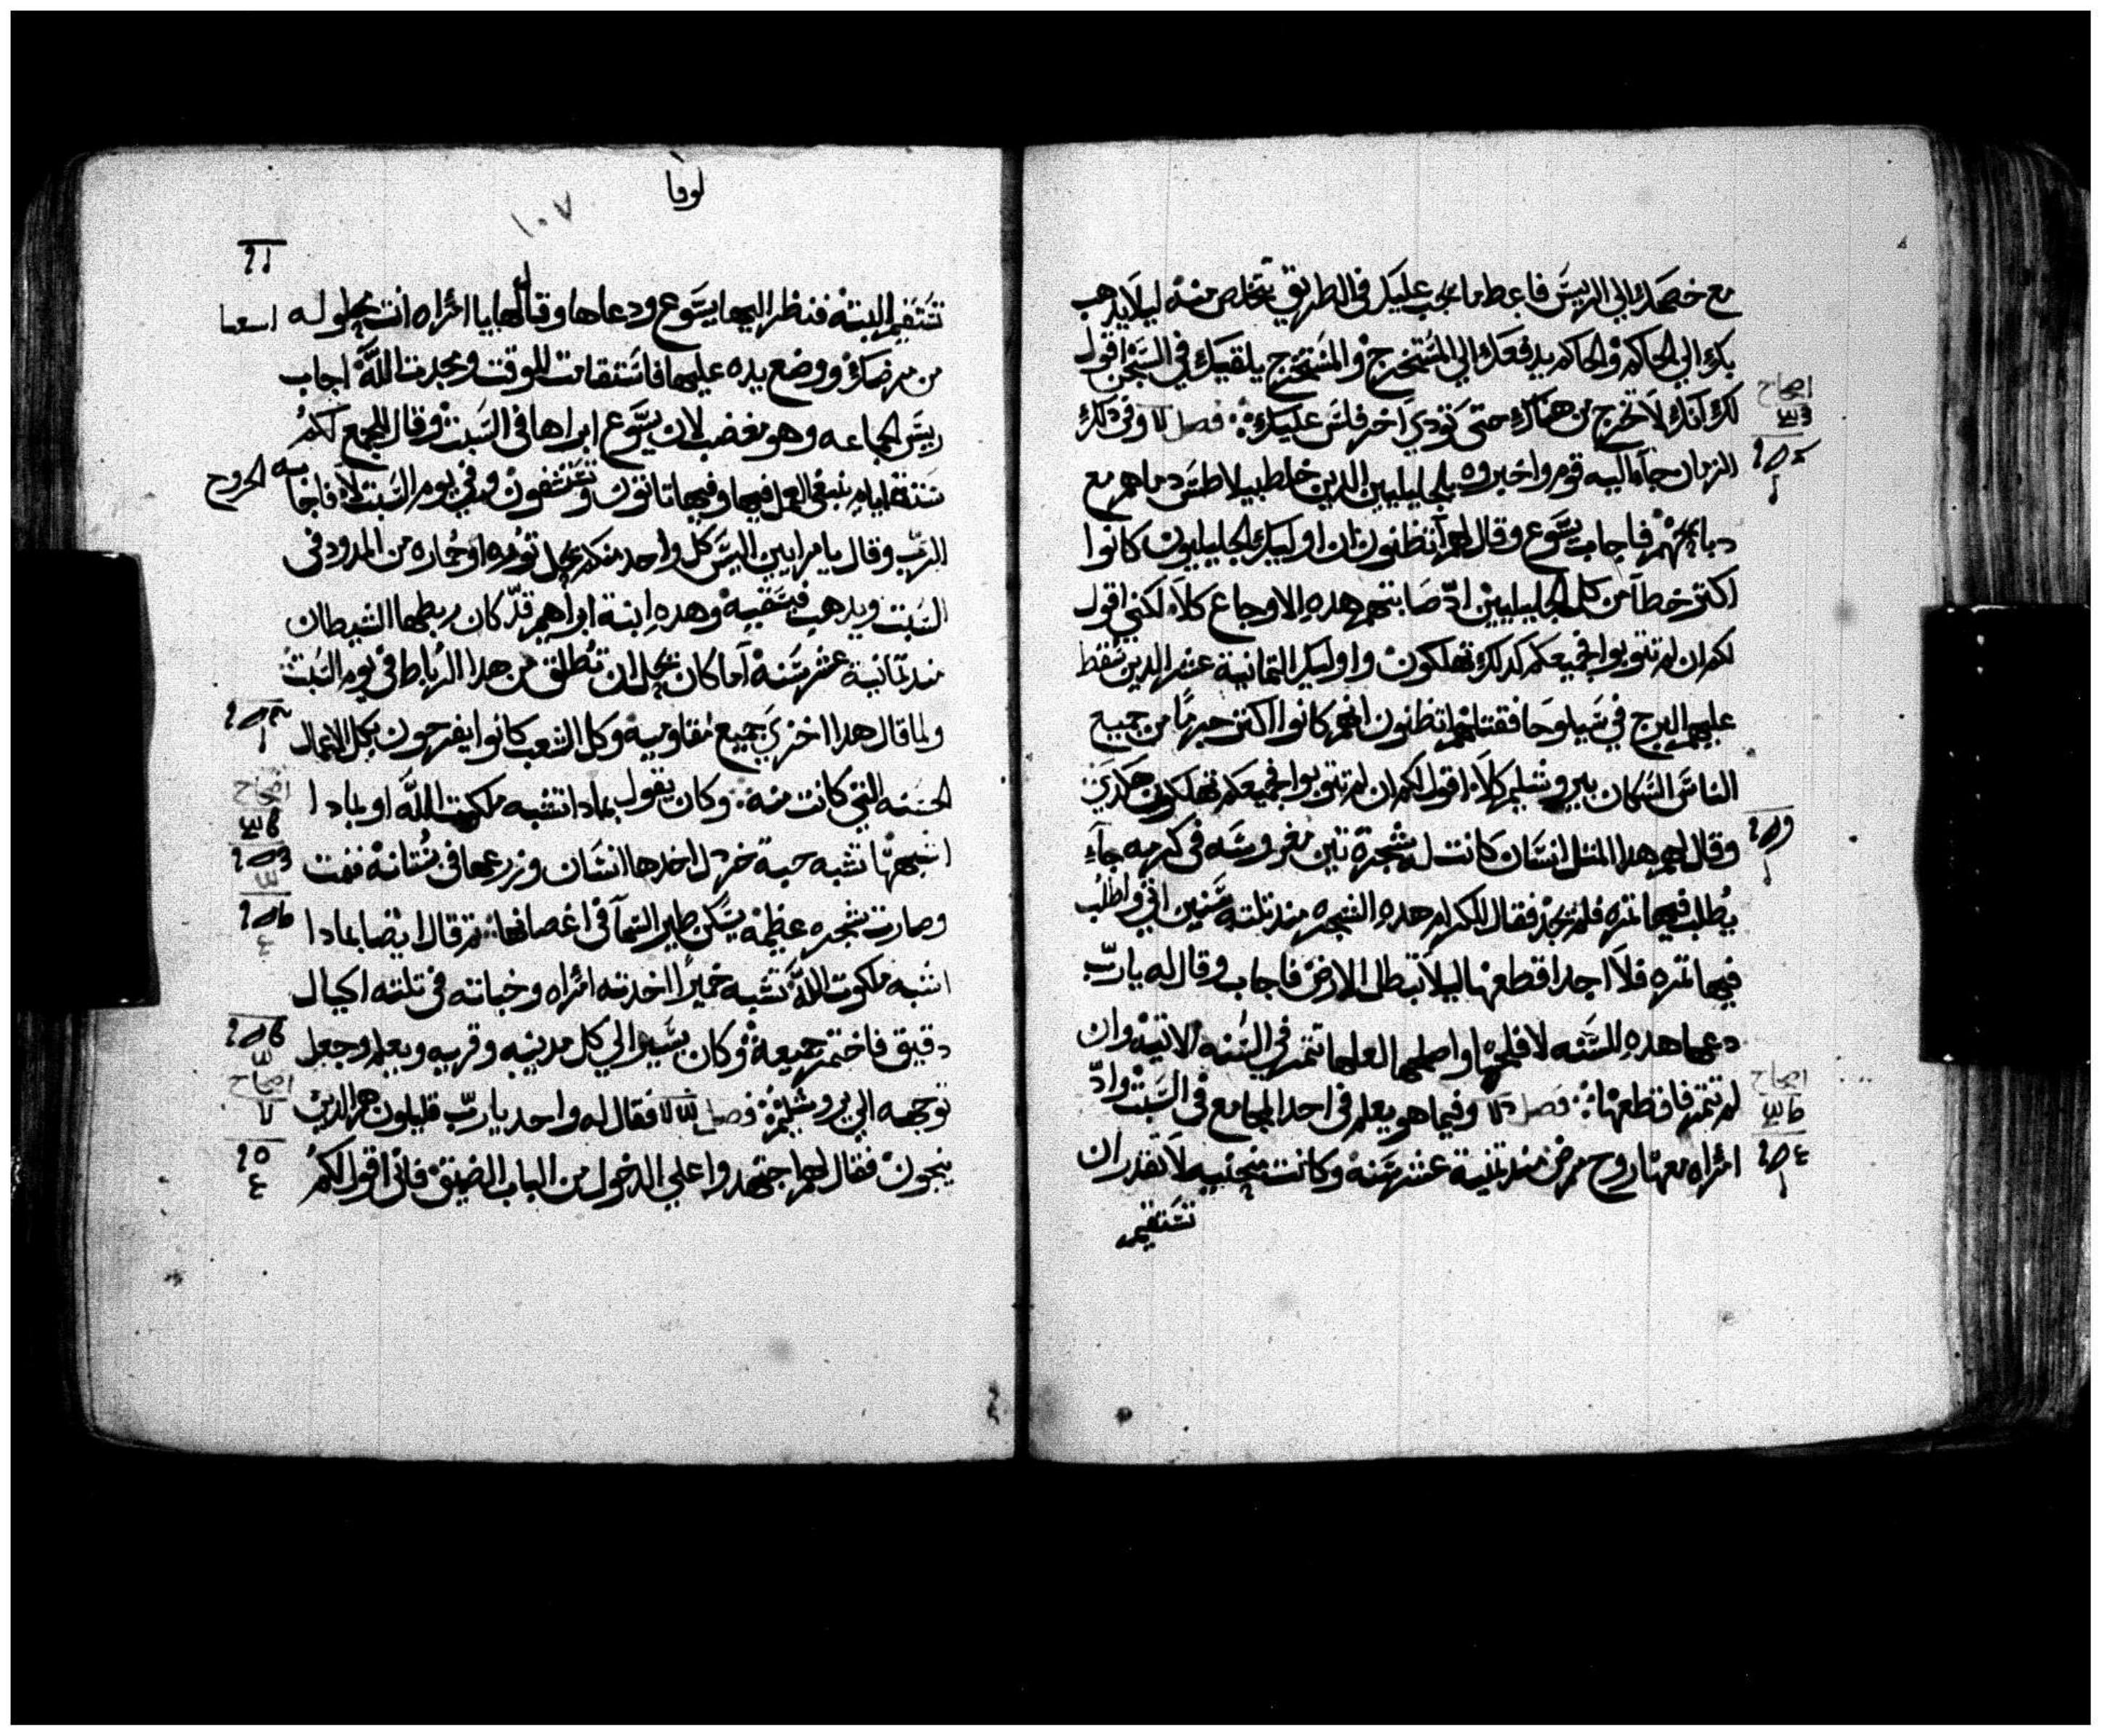 مع خصمك الي الريس فاعط ما يجب عليك في الطريق تخلص منه ليلا يدهب
بك الي الحاكم والحاكم يدفعك الي المستخرج والمستخرج يلقيك في السجن اقول
لك انك لا تخرج من هناك حتي تودي اخر فلس عليك فصل وفي دلك
الزمان جاء اليه قوم واخبروه بالجليليين الدين خلط بيلاطس دماهم مع
دبايحهم فاجاب يسوع وقال لهم اتظنون ان اوليك الجليليون كانوا
اكتر خطا من كل الجليليين اد صابتهم هده الاوجاع كلا لكني اقول
لكم ان لم تتوبوا فجميعكم كدلك تهلكون واوليك التمانية عشر الدين سقط
عليهم البرج في سيلوحا فقتلهم اتظنون انهم كانوا اكتر جرما من جميع
الناس السكان بيروشليم كلا اقول لكم ان لم تتوبوا فجميعكم تهلكون هكدي
وقال لهم هدا المتل انسان كانت له شجرة تين مغروسه في كرمه جاء
يطلب فيها تمره فلم يجد فقال للكرام هده الشجره مند تلته سنين اتي واطلب
فيها تمره فلا اجد اقطعها ليلا تبطل الارض فاجاب وقال له يا رب
دعها هده السنه لافلحها واصلحها لعلها تتمر في السنه الاتيه وان
لم تتمر فاقطعها فصل وفيما هو يعلم في احد المجامع في السبت واد
امراه معها روح مرض مند تمنية عشر سنه وكانت منحنيه لا تقدر ان
تستقيم
لوقا
١٠٧
تستقيم البته فنظر اليها يسوع ودعاها وقال لها يا امراه انت محلوله
من مرضك ووضع يده عليها فاستقامت للوقت ومجدت الله اجاب
ريس الجماعه وهو مغضب لان يسوع ابراها في السبت وقال للجمع لكم
ستة ايام ينبغي العمل فيها وفيها تاتون وتستشفون وفي يوم السبت لا فاجابه
الرب وقال يا مرايين اليس كل واحد منكم يحل توره او حماره من المدود في
السبت ويدهب فيسقيه وهده ابنة ابراهيم قد كان ربطها الشيطان
مند تمانية عشر سنه اما كان يحل ان تطلق من هدا الرباط في يوم السبت
ولما قال هدا اخزي جميع مقاوميه وكل الشعب كانوا يفرحون بكل الاعمال
الحسنه التي كانت منه وكان يقول بمادا تشبه ملكوت الله او بمادا
اشبهها تشبه حبة خردل اخدها انسان وزرعها في بستانه فنمت
وصارت شجره عظيمه يسكن طير السما في اغصانها تم قال ايضا بمادا
اشبه ملكوت الله تشبه خميرا اخدته امراه وخباته في تلته اكيال
دقيق فاختمر جميعه وكان يسير الي كل مدينه وقريه ويعلم وجعل
توجهه الي يروشليم فصل فقال له واحد يا رب قليلون هم الدين
ينجون فقال لهم اجتهدوا علي الدخول من الباب الضيق فاني اقول لكم